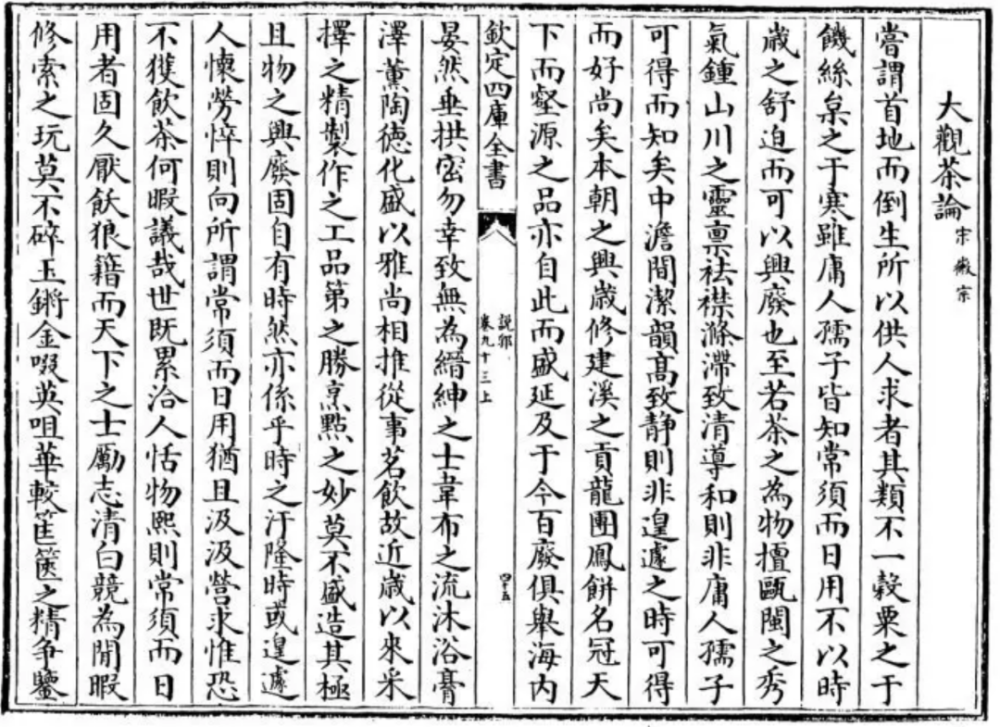 大觀茶論宋徽宗
嘗謂首地而倒生所以供人求者其類不一穀粟之于
饑絲枲之于寒雖庸人孺子皆知常須而日用不以時
歲之舒迫而可以興廢也至若茶之為物擅甌閩之秀
氣鍾山川之靈禀祛襟滌滯致清導和則非庸人孺子
可得而知矣中澹間潔韻髙致静則非遑遽之時可得
而好尚矣本朝之興歲修建溪之貢龍團鳳餅名冠天
下而壑源之品亦自此而盛延及于今百廢俱舉海内
欽定四庫全書
説郛
卷九十三上
四十五
晏然垂拱宻勿幸致無為縉紳之士韋布之流沐浴膏
澤薰陶徳化盛以雅尚相推從事茗飲故近歲以來采
擇之精製作之工品第之勝烹㸃之妙莫不盛造其極
且物之興廢固自有時然亦係乎時之汙隆時或遑遽
人懷勞悴則向所謂常須而日用猶且汲汲營求惟恐
不獲飲茶何暇議哉世既累洽人恬物熙則常須而日
用者固久厭飫狼籍而天下之士勵志清白競為閒暇
修索之玩莫不碎玉鏘金啜英咀華較筐篋之精争鑒